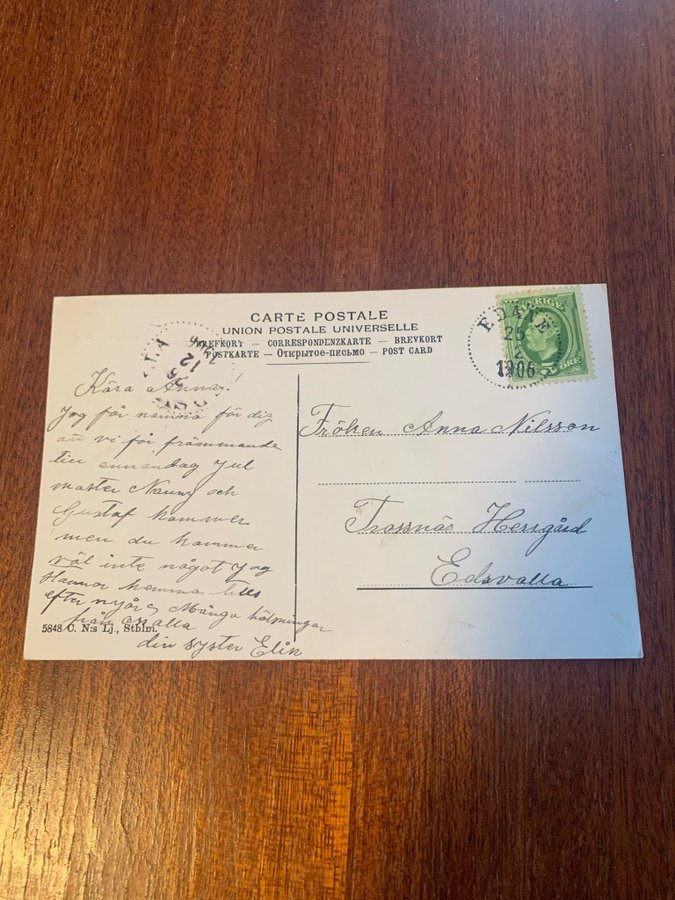 CARTE POSTALE
UNION POSTALE UNIVERSELLE
BREFKORT — CORRESPONDENZKARTE — BREVKORT
POSTKARTE — Открытое-письмо — POST CARD
SVERIGE
5
ÖRE
EDANE
25
12
1906
26
12
Kära Anna!
Jag får nämna för dig
att vi får främmande
till annandag Jul
moster Nanny och
Gustaf kommer
men du kommer
väl inte något Jag
Hannor komma till
efter nyår Många hälsningar
från oss alla
din syster Elin
Fröken Anna Nilsson
Trossnäs Herrgård
Edsvalla
5848 C. N:s Lj., Sthlm.